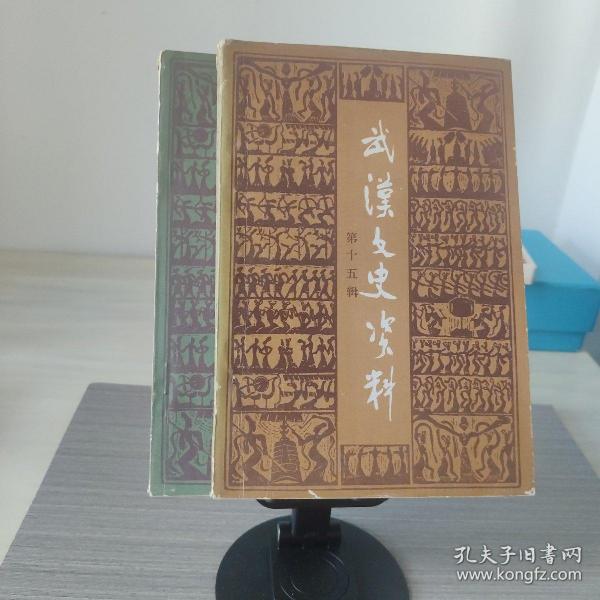 武漢文史资料
第十五辑
孔夫子旧书网
www.kongfz.com